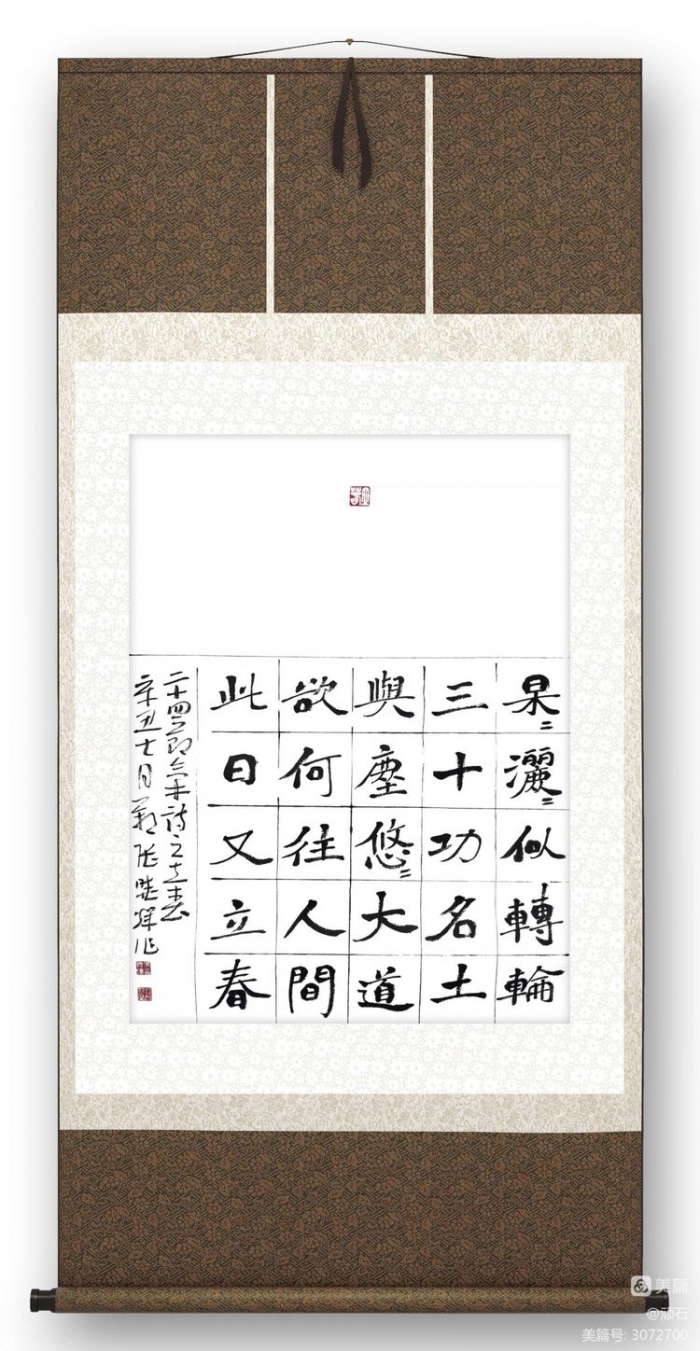 杲〻灑〻似轉輪
三十功名土
與塵悠〻大道
欲何往人間
此日又立春
二十四節氣詩之立春
辛丑七月
作
美篇
@顽石
美篇号: 3072700